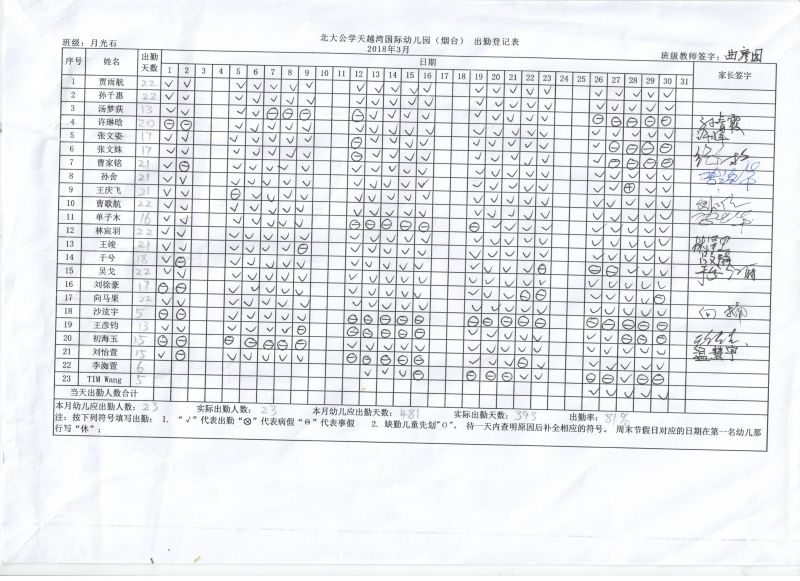 北大公学天越湾国际幼儿园（烟台） 出勤登记表
班级：月光石 2018年3月 班级教师签字：
序号 姓名 出勤天数 日期 家长签字
1 2 3 4 5 6 7 8 9 10 11 12 13 14 15 16 17 18 19 20 21 22 23 24 25 26 27 28 29 30 31
1 贾雨航 22
2 孙千惠 22
3 汤梦荻 13
4 许琳晗 20
5 张文姿 17
6 张文姝 17
7 曹家铭 21
8 孙舍 21
9 王庆飞 21
10 曹歌航 22
11 单子木 16
12 林宸羽 22
13 王竣 21
14 于兮 18
15 吴戈 22
16 刘徐豪 17
17 向马果 22
18 沙泫宇 5
19 王彦钧 13
20 初海玉 15
21 刘怡萱 15
22 李湎萱 6
23 TIM Wang 5
当天出勤人数合计
本月幼儿应出勤人数：23 实际出勤人数：23 本月幼儿应出勤天数：481 实际出勤天数：393 出勤率：81%
注：按下列符号填写出勤： 1. “√”代表出勤“⊗”代表病假“⊖”代表事假 2. 缺勤儿童先划"○"，待一天内查明原因后补全相应的符号。 周末节假日对应的日期在第一名幼儿那
行写“休”；